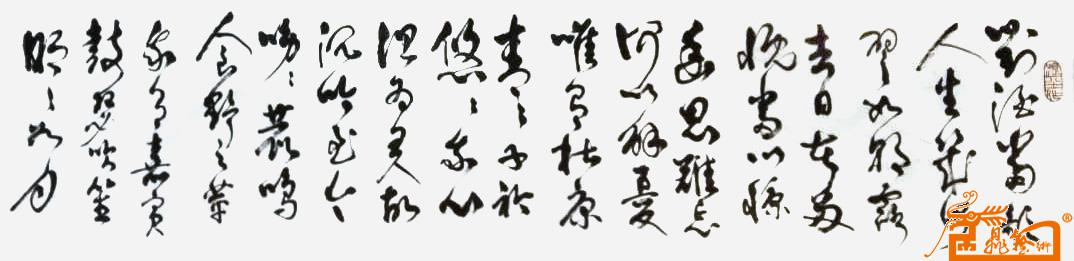 對酒當歌
人生幾何
譬如朝露
去日苦多
慨當以慷
幽思難忘
何以解憂
唯有杜康
青々子衿
悠々我心
但為君故
沉吟至今
呦々鹿鳴
食野之苹
我有嘉賓
鼓瑟吹笙
明々如月